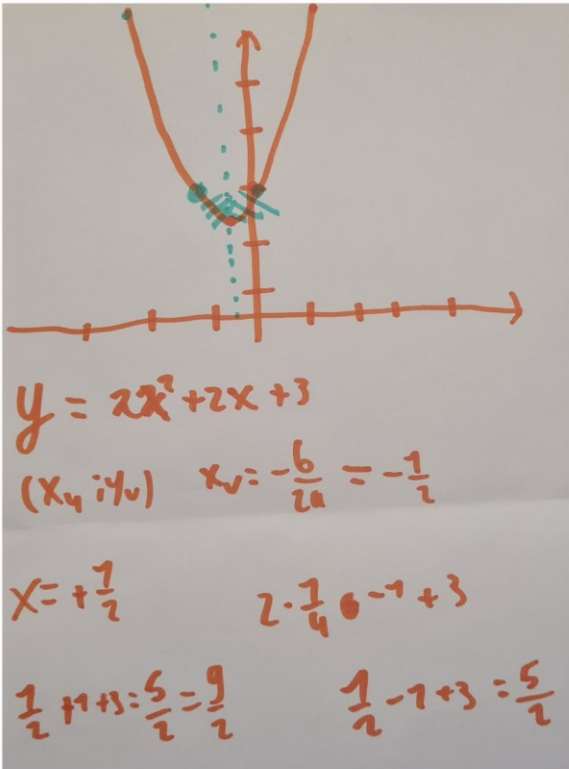 y = 2x²+2x+3
(xᵥ; yᵥ) xᵥ = -b/2a = -1/2
x = +1/2 2·1/4 -1 +3
1/2 +1+3 = 5/2 = 9/2 1/2 -1+3 = 5/2